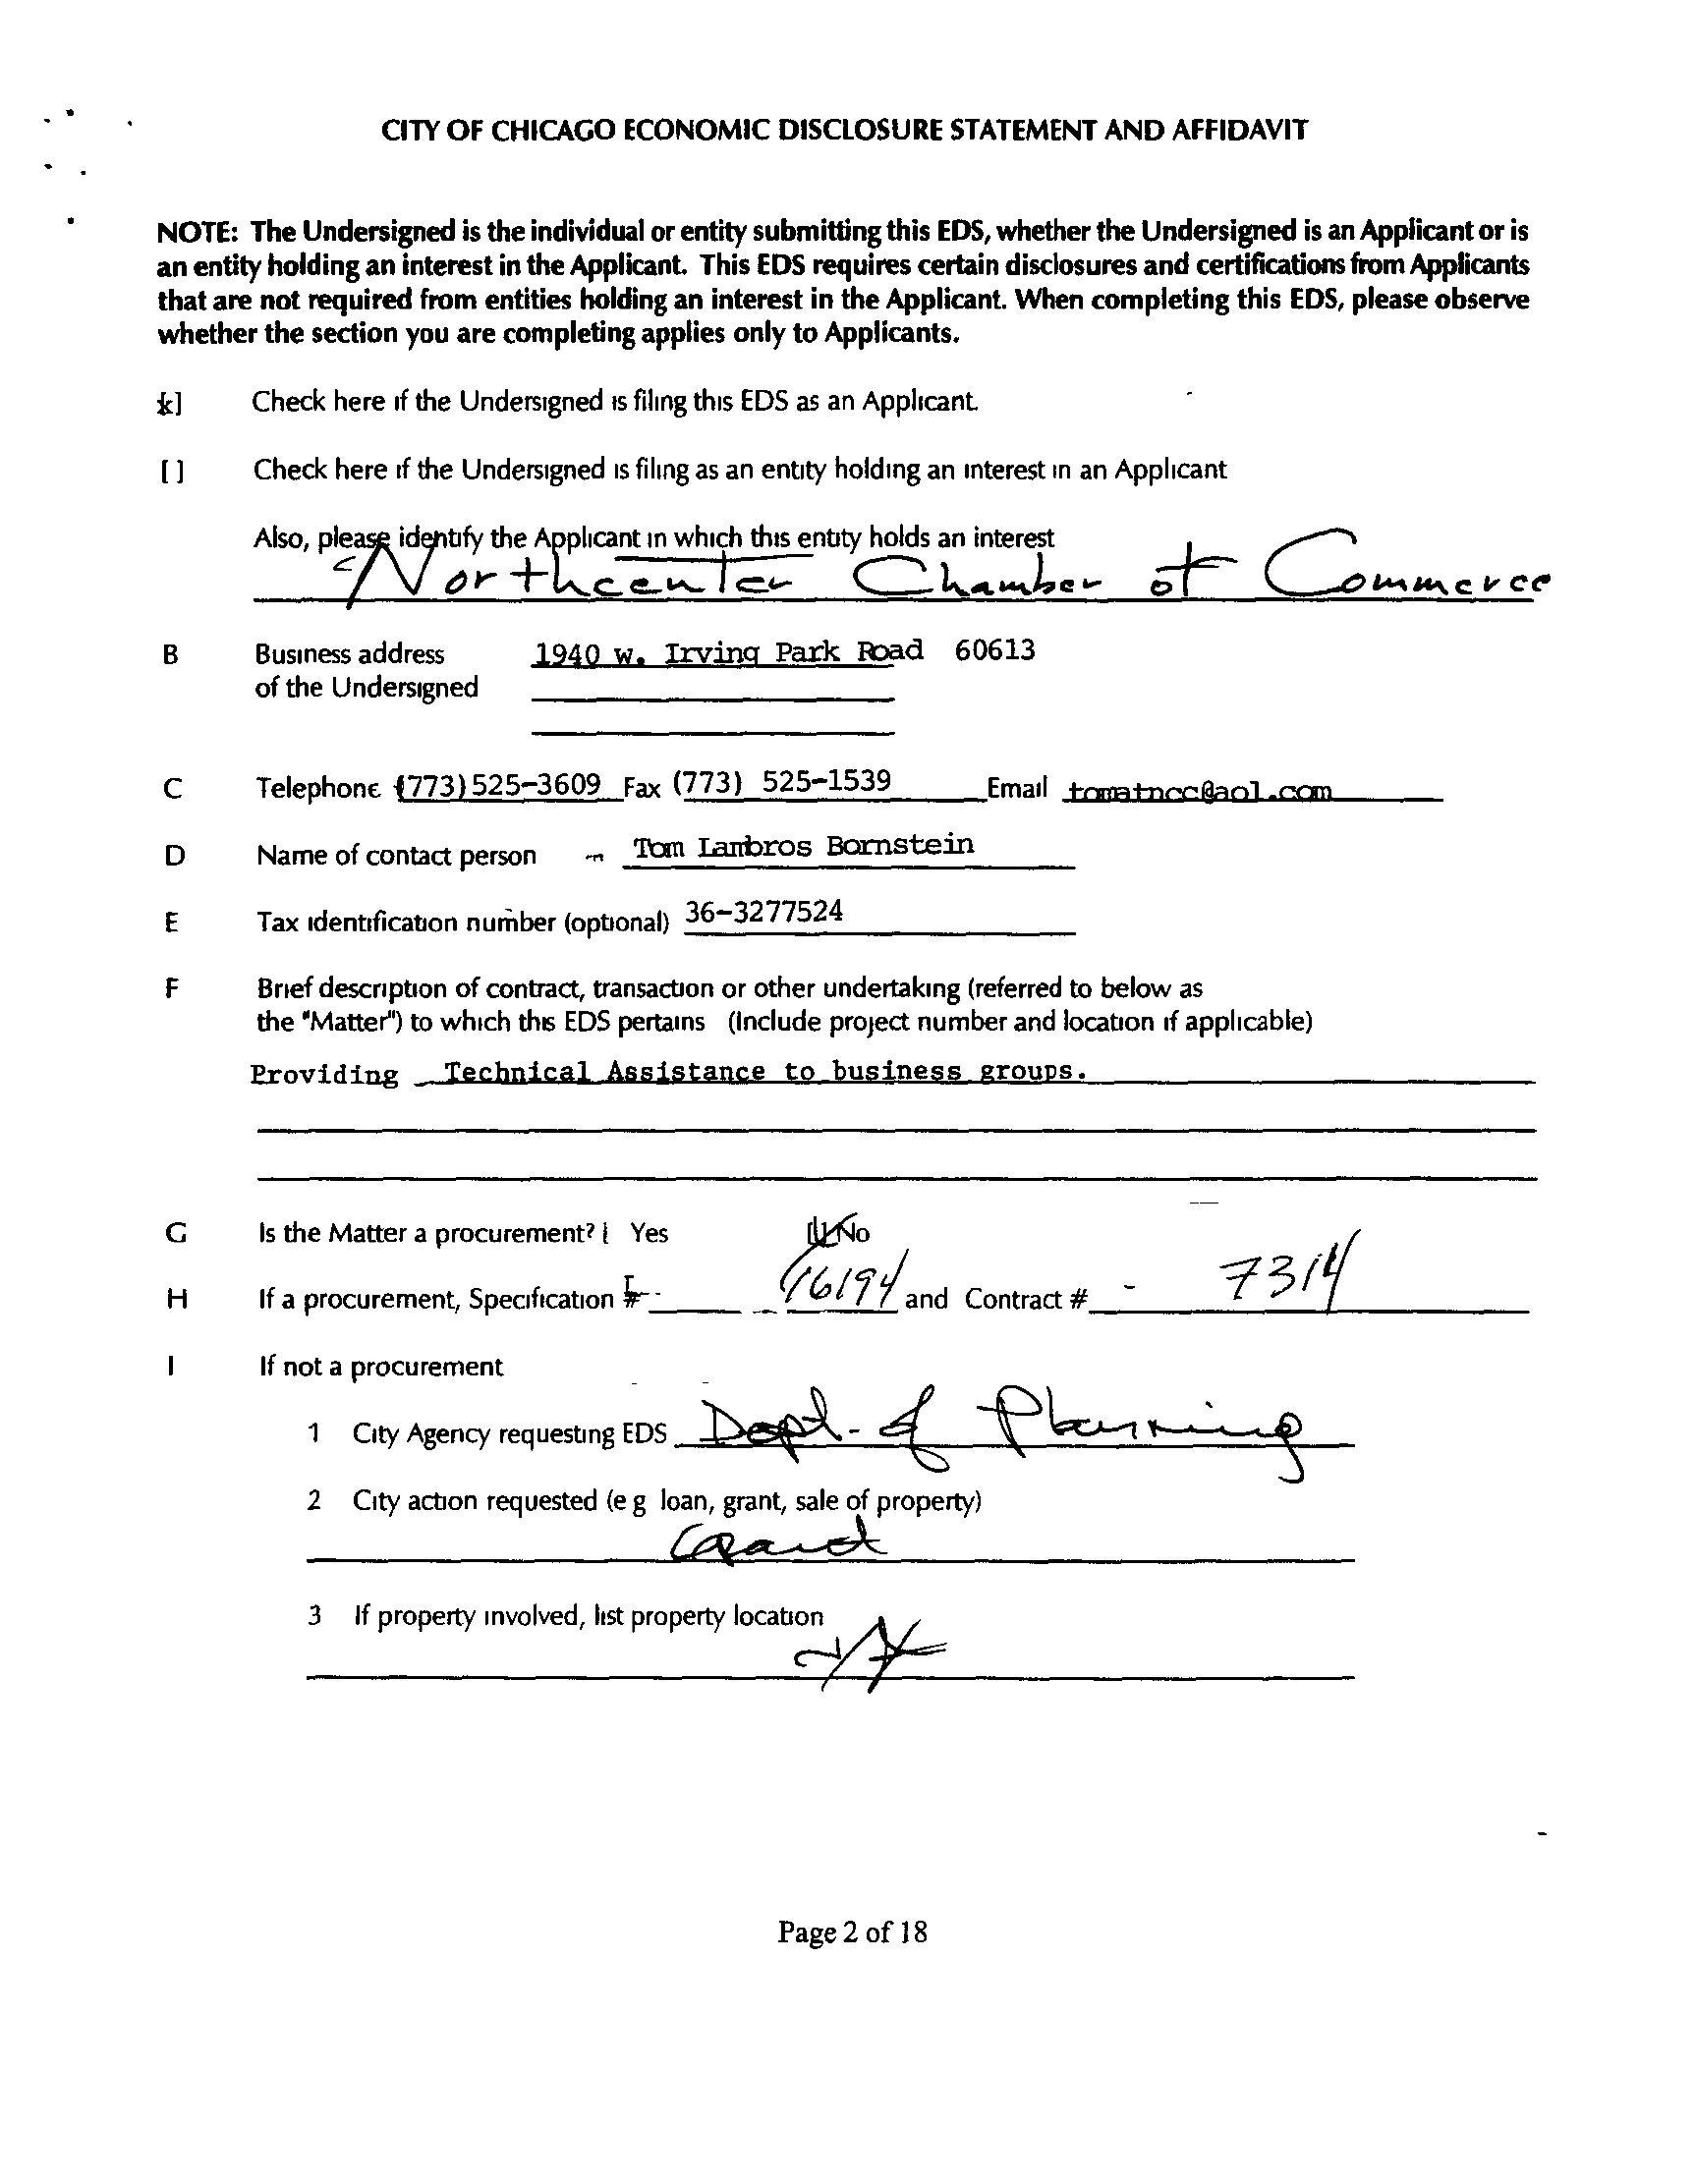 CITY OF CHICAGO ECONOMIC DISCLOSURE STATEMENT AND AFFIDAVIT
NOTE: The Undersigned is the individual or entity submitting this EDS, whether the Undersigned is an Applicant or is
an entity holding an interest in the Applicant. This EDS requires certain disclosures and certifications from Applicants
that are not required from entities holding an interest in the Applicant. When completing this EDS, please observe
whether the section you are completing applies only to Applicants.
[x] Check here if the Undersigned is filing this EDS as an Applicant.
[ ] Check here if the Undersigned is filing as an entity holding an interest in an Applicant
Also, please identify the Applicant in which this entity holds an interest
Northcenter Chamber of Commerce
B Business address 1940 w. Irving Park Road 60613
of the Undersigned
C Telephone (773) 525-3609 Fax (773) 525-1539 Email tomatncc@aol.com
D Name of contact person Tom Lambros Bornstein
E Tax identification number (optional) 36-3277524
F Brief description of contract, transaction or other undertaking (referred to below as
the "Matter") to which this EDS pertains (Include project number and location if applicable)
Providing Technical Assistance to business groups.
G Is the Matter a procurement? [ Yes [ ] No
H If a procurement, Specification # 16194 and Contract # 7314
I If not a procurement
1 City Agency requesting EDS Dept. of Planning
2 City action requested (e g loan, grant, sale of property)
Grant
3 If property involved, list property location
Page 2 of 18